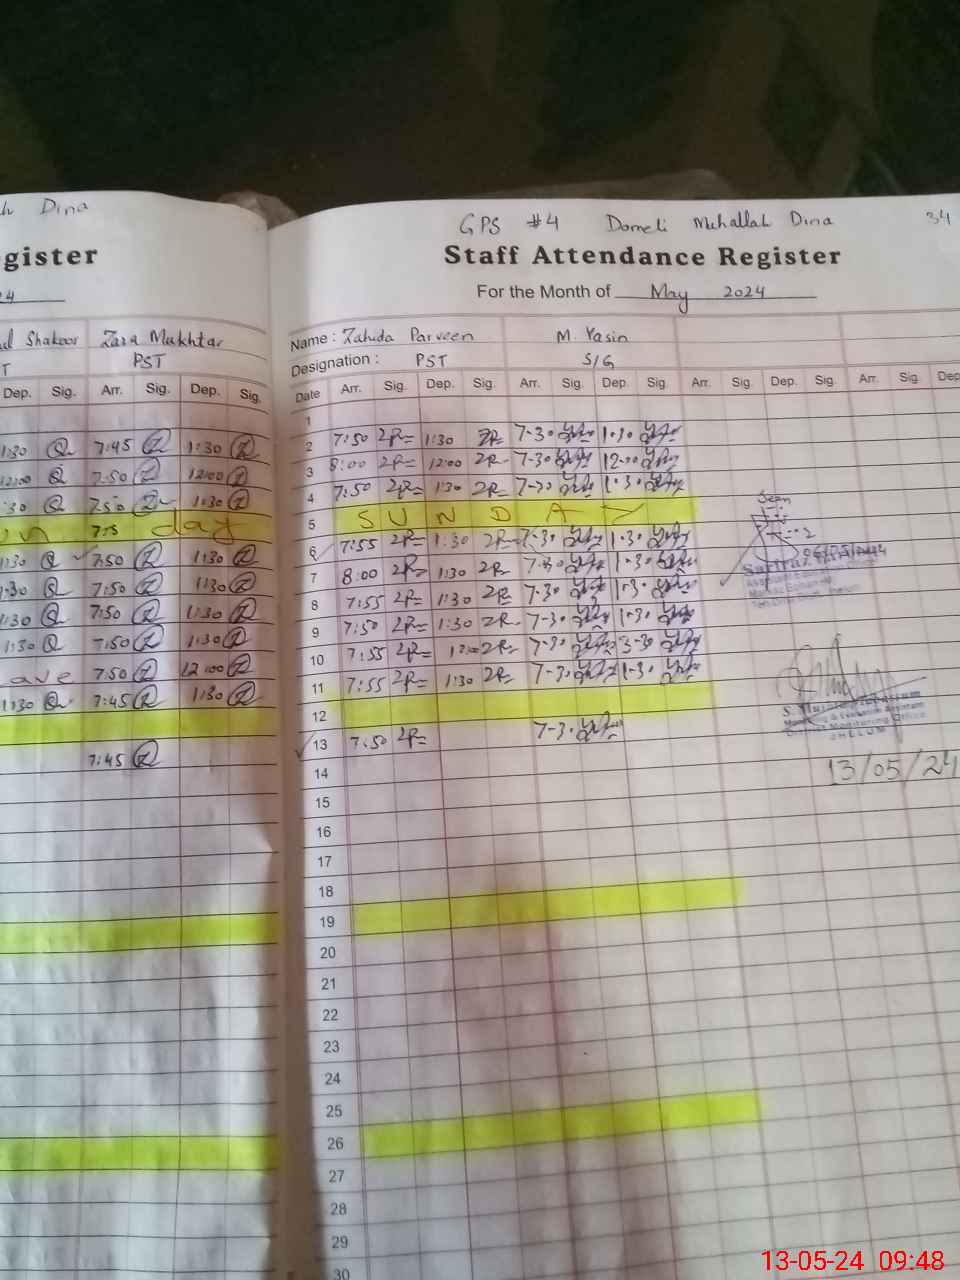 Dina
gister
24
Shakoor Zara Mukhtar
T PST
Dep. Sig. Arr. Sig. Dep. Sig.
1:30 7:45 1:30
12:00 7:50 12:00
:30 7:50 1:30
un 7:5 day
1:30 7:50 1:30
1:30 7:50 1:30
1:30 7:50 1:30
1:30 7:50 1:30
eave 7:50 12:00
1:30 7:45 1:30
7:45
GPS #4 Domeli Mohallah Dina 34
Staff Attendance Register
For the Month of May 2024
Name : Zahida Parveen M. Yasin
Designation : PST S/G
Date Arr. Sig. Dep. Sig. Arr. Sig. Dep. Sig. Arr. Sig. Dep. Sig. Arr. Sig. Dep
1
2 7:50 ZP 1:30 ZP 7-30 1-30
3 8:00 ZP 12:00 ZP 7-30 12-00
4 7:50 ZP 1:30 ZP 7-30 1-30
5 SUNDAY
6 7:55 ZP 1:30 ZP 7-30 1-30
7 8:00 ZP 1:30 ZP 7-30 1-30
8 7:55 ZP 1:30 ZP 7-30 1-30
9 7:50 ZP 1:30 ZP 7-30 1-30
10 7:55 ZP ZP 7-30
11 7:55 ZP 1:30 ZP 7-30 1-30
12
13 7:50 ZP 7-30
14
15
16
17
18
19
20
21
22
23
24
25
26
27
28
29
30
Seen
Sarfraz
Monitoring & Evaluation Assistant
District Monitoring Office
JHELUM
13/05/24
13-05-24 09:48